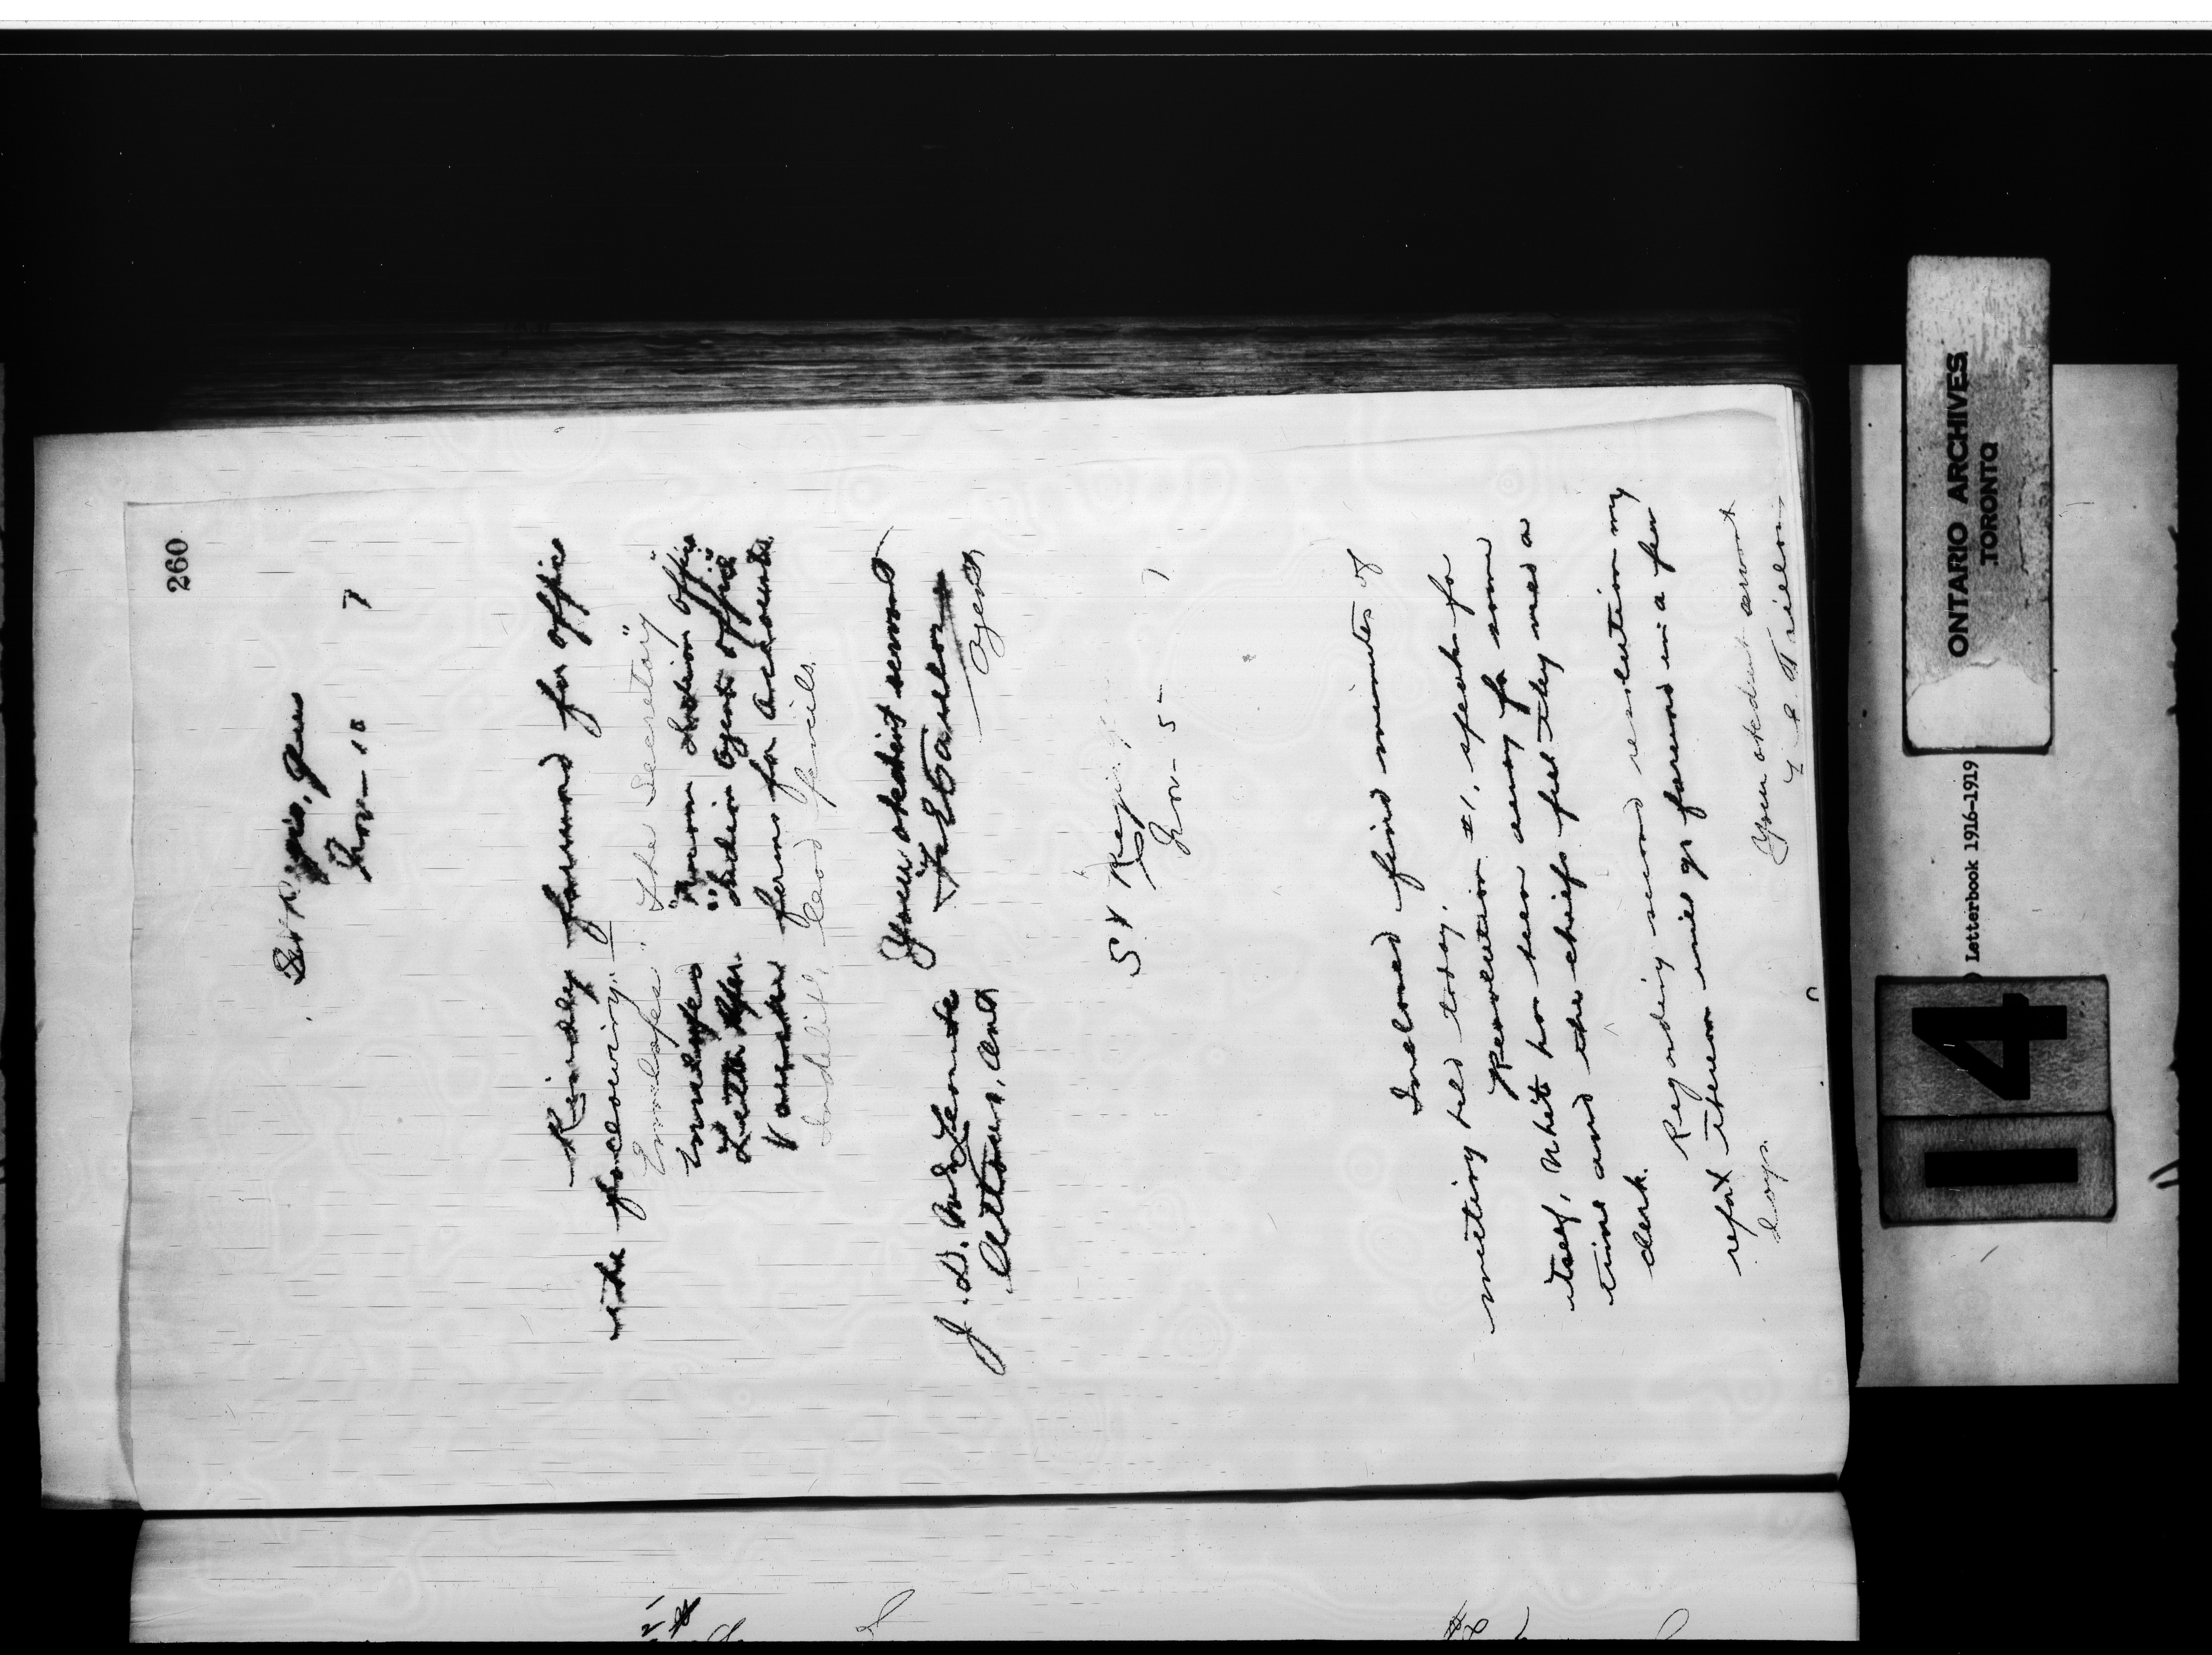 260
St Regis, Que
Nov – 10 7
Kindly forward for office
the following:–
Envelopes "The Secretary"
Envelopes " Indian Office
Letter Indian Agent Office"
forms for Accounts
Indelible lead pencils.
Your obedient servant
Agent
J. D. McLean
Ottawa, Ont
St Regis
Nov – 5 – 7
Inclosed find minutes of
meeting held today.
Resolution #1, speaks for
itself, White has been away for some
time and the chiefs feel they need a
clerk.
Regarding second resolution my
report thereon will go forward in a few
days.
Your obedient servant
ONTARIO ARCHIVES
TORONTO
Letterbook 1916-1919
14